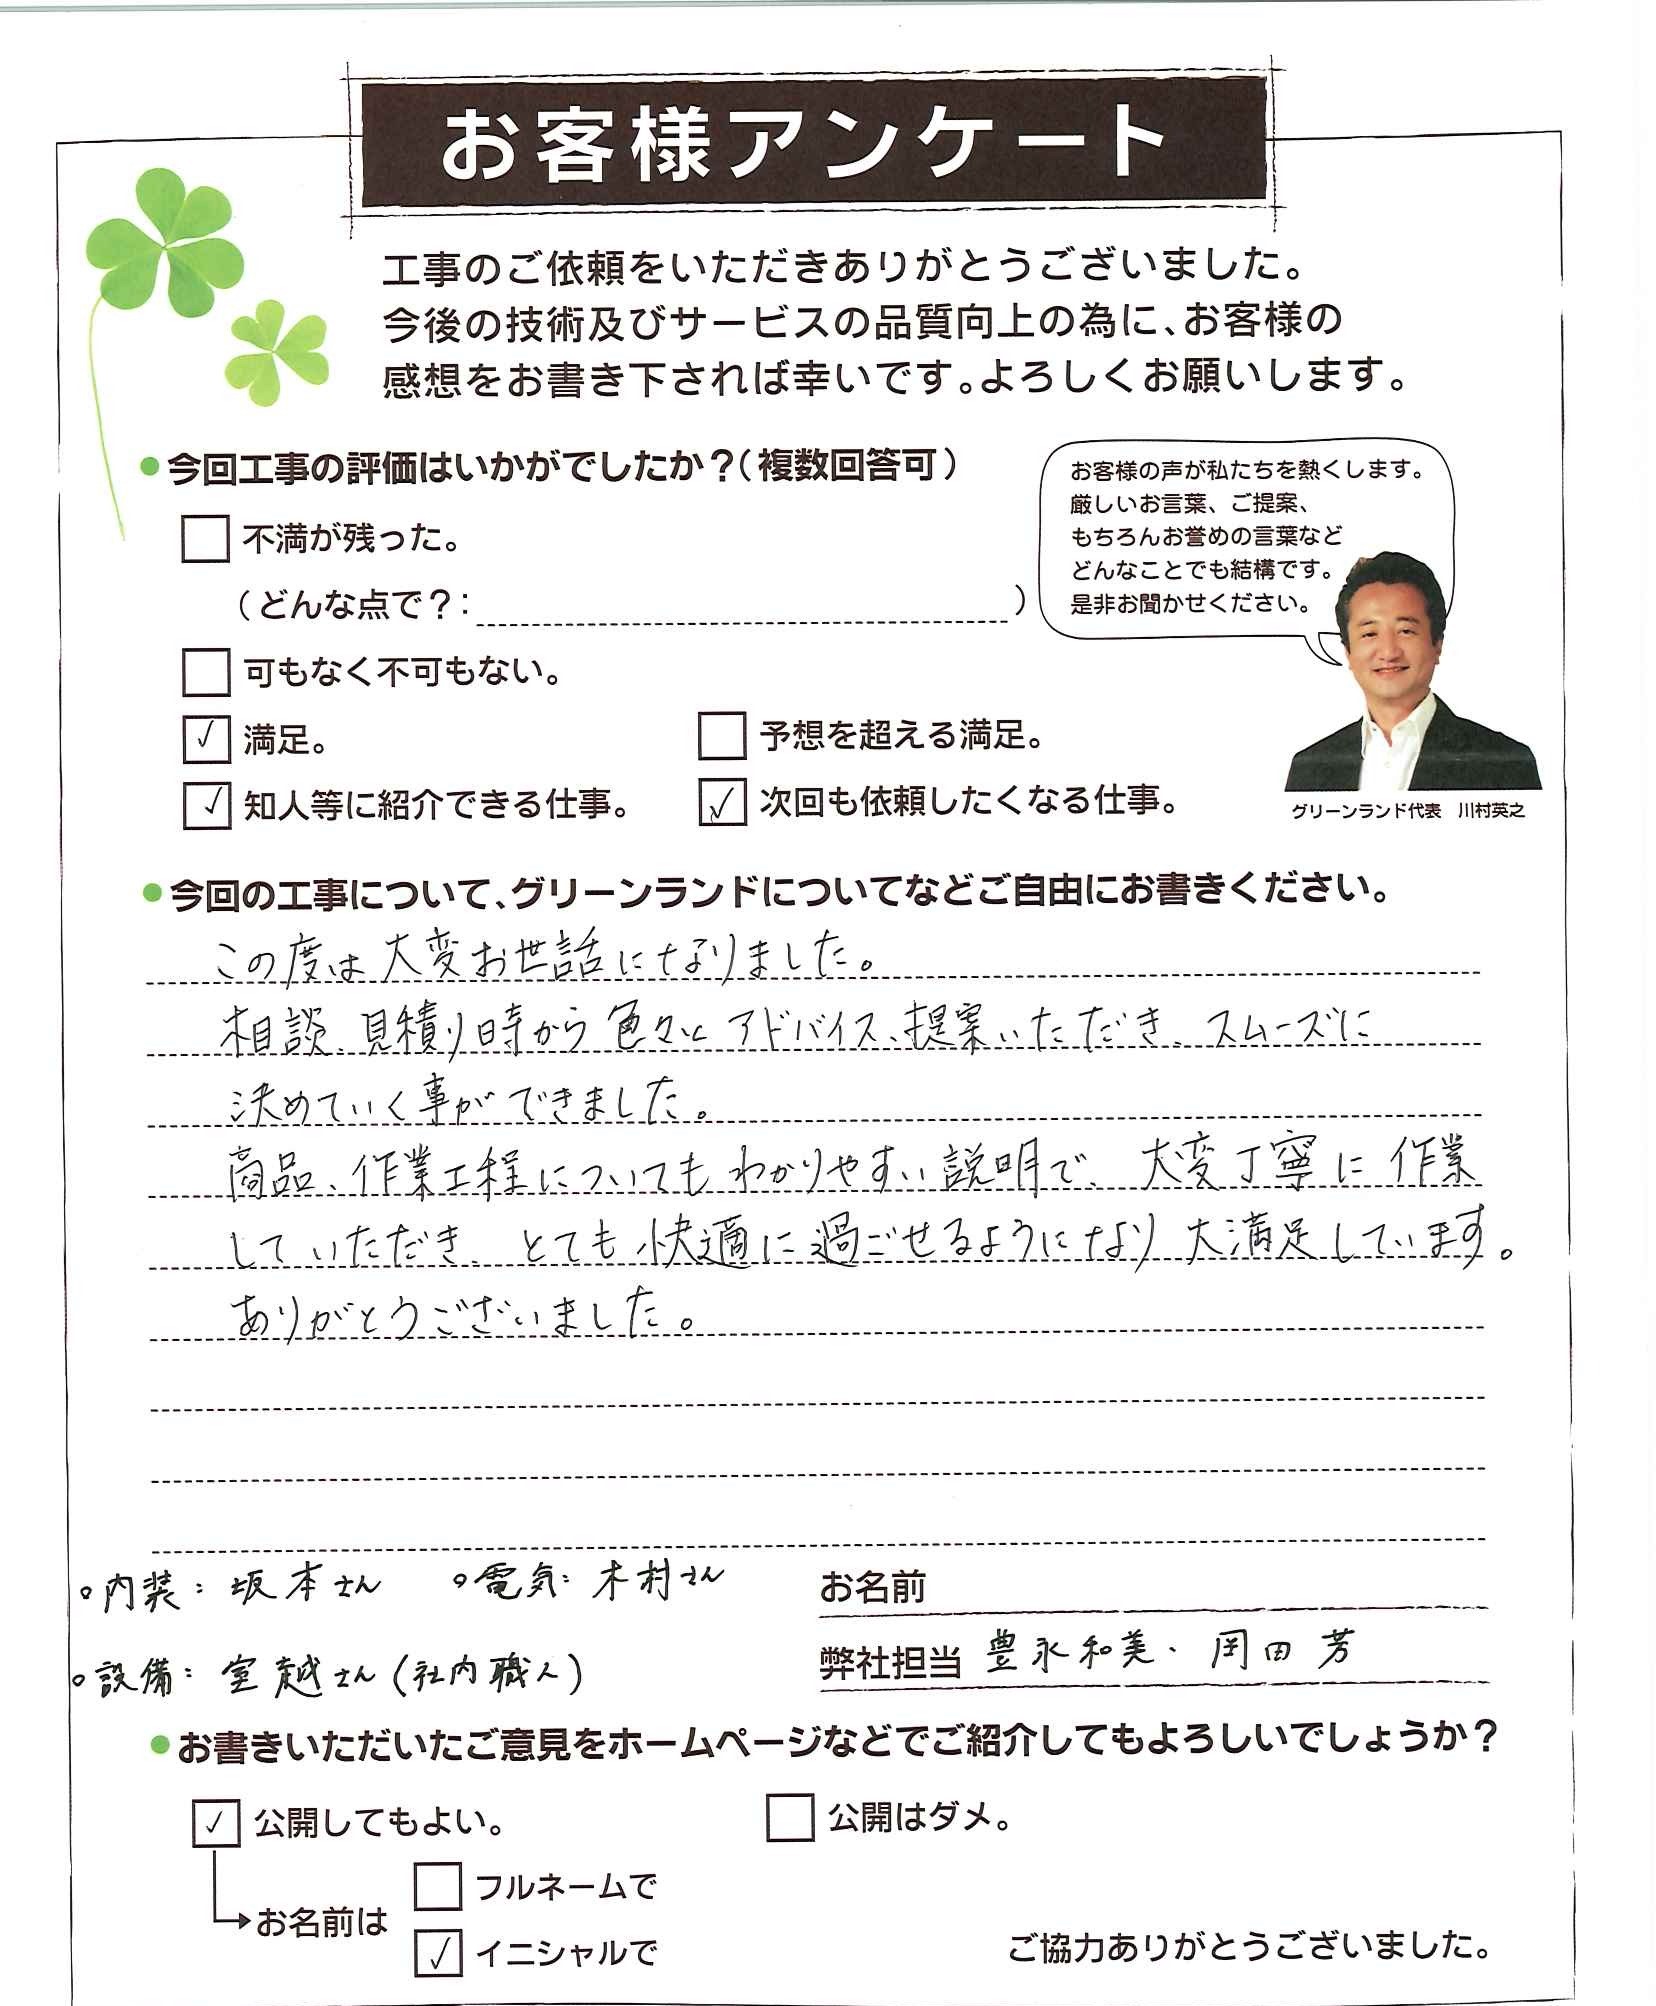 お客様アンケート
工事のご依頼をいただきありがとうございました。
今後の技術及びサービスの品質向上の為に、お客様の
感想をお書き下されば幸いです。よろしくお願いします。
●今回工事の評価はいかがでしたか？（複数回答可）
不満が残った。
（どんな点で？：　　　　　　　　）
可もなく不可もない。
✓ 満足。　予想を超える満足。
✓ 知人等に紹介できる仕事。　✓ 次回も依頼したくなる仕事。
お客様の声が私たちを熱くします。
厳しいお言葉、ご提案、
もちろんお誉めの言葉など
どんなことでも結構です。
是非お聞かせください。
グリーンランド代表　川村英之
●今回の工事について、グリーンランドについてなどご自由にお書きください。
この度は大変お世話になりました。
相談、見積り時から色々とアドバイス、提案いただき、スムーズに
決めていく事ができました。
商品、作業工程についてもわかりやすい説明で、大変丁寧に作業
していただき、とても快適に過ごせるようになり大満足しています。
ありがとうございました。
○内装：坂本さん　○電気：木村さん
○設備：室越さん（社内職人）
お名前
弊社担当 豊永和美・岡田芳
●お書きいただいたご意見をホームページなどでご紹介してもよろしいでしょうか？
✓ 公開してもよい。　公開はダメ。
お名前は
フルネームで
✓ イニシャルで
ご協力ありがとうございました。